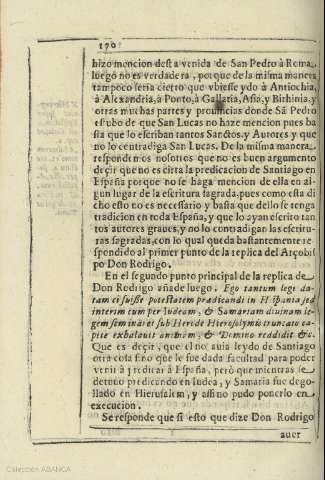 170
hizo mencion desta venida de San Pedro à Roma,
luego no es verdadera, porque de la misma manera
tampoco seria cierto que vbiesse ydo à Antiochia,
à Alexandria, à Ponto, à Gallatia, Asia, y Bithinia, y
otras muchas partes y prouincias donde Sã Pedro
estubo de que San Lucas no haze mencion pues ba
sta que lo escriban tantos Sanctos. y Autores y que
no lo contradiga San Lucas. De la misma manera
respondimos nosotros que no es buen argumento
deçir que no es cirta la predicacion de Santiago en
España porque no se haga mencion de ella en al-
gun lugar de la escritura sagrada, pues como esta di
cho esto no es necessario y basta que dello se tenga
tradicion en toda España, y que lo ayan escrito tan
tos autores graues, y no lo contradigan las escritu-
ras sagradas, con lo qual queda bastantemente re-
spondido al primer punto de la replica del Arçobis
po Don Rodrigo.
En el segundo punto principal de la replica de
Don Rodrigo añade luego. Ego tantum lege da-
tam ei fuisse potestatem prædicandi in Hispania sed
interim cum per Iudeam, & Samariam diuinam le-
gem seminaret sub Herode Hierosolymis truncato ca-
pite exhalauit animam, & Domino reddidit &c.
Que es deçir, que el no auia leydo de Santiago
otra cosa sino que le fue dada facultad para poder
venir à predicar à España, però que mientras se
detuuo predicando en Iudea, y Samaria fue dego-
llado en Hierusalem, y assi no pudo ponerlo en
execucion.
Se responde que si esto que dize Don Rodrigo
auer
Colección ABANCA